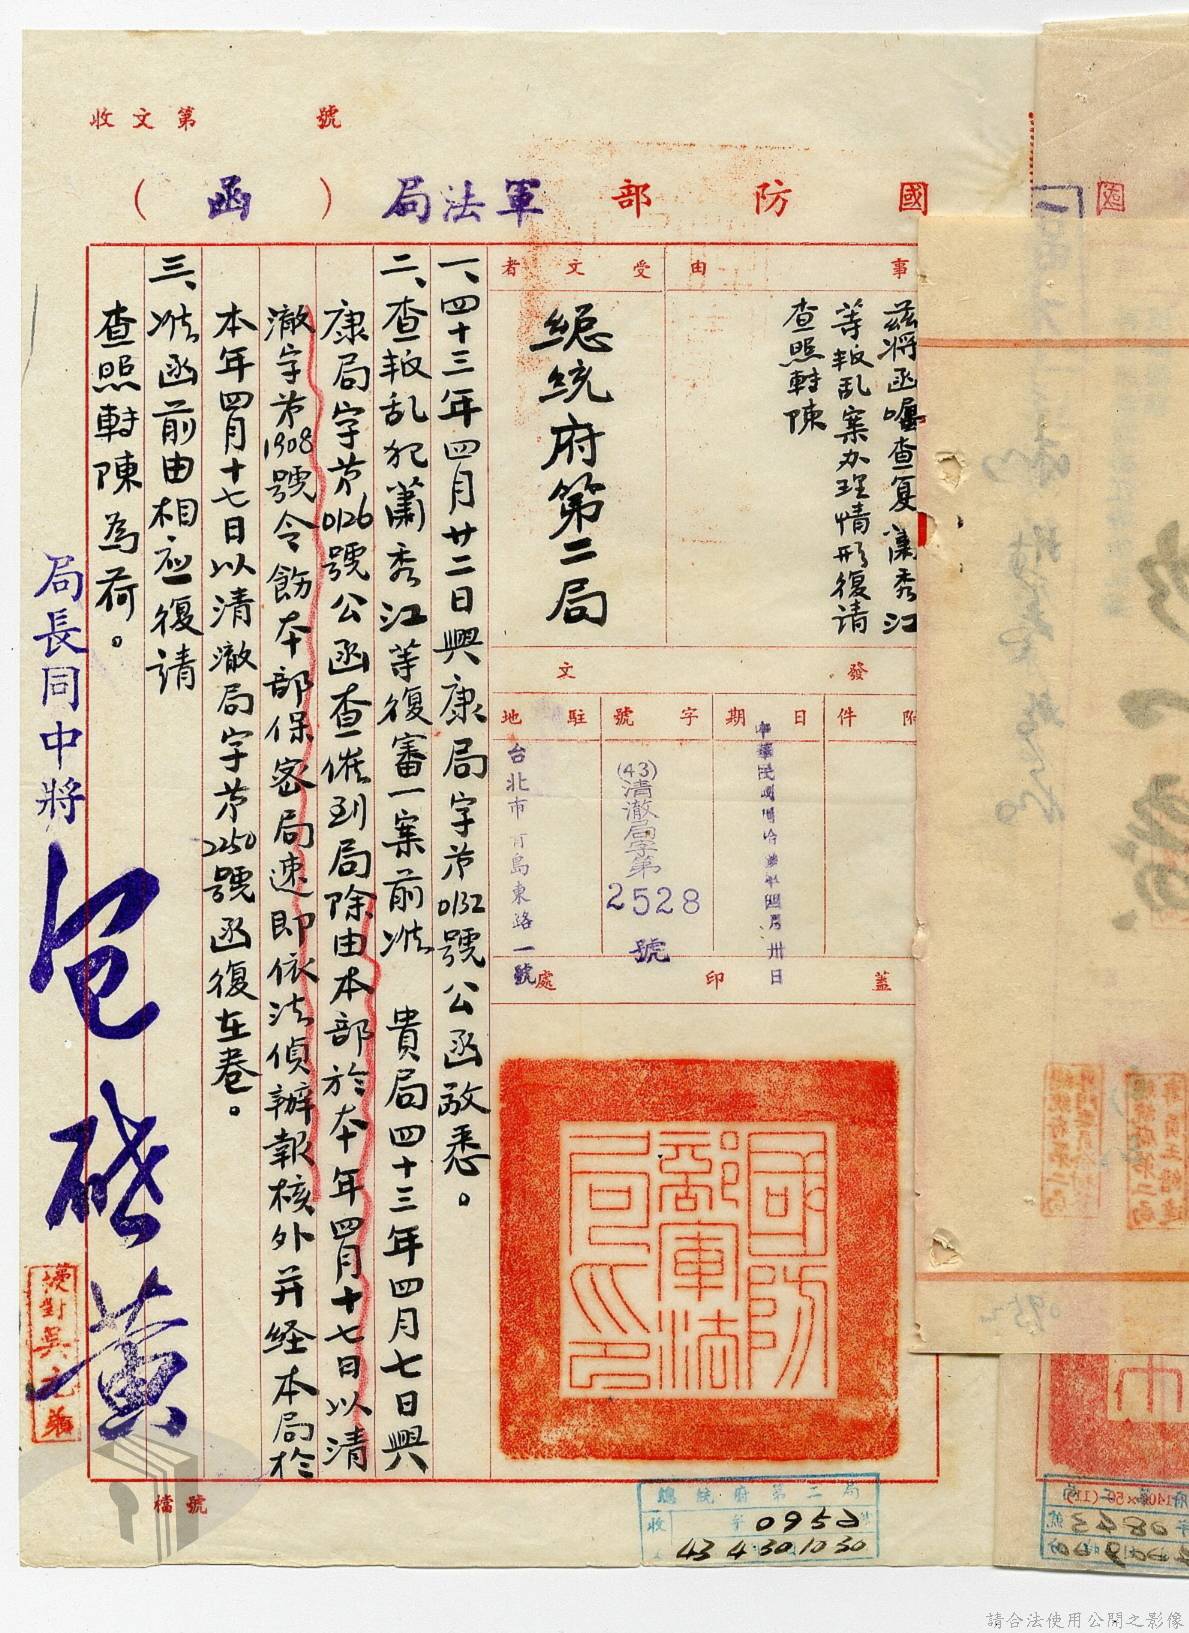 收文第　　　號
國防部軍法局（函）
事由
茲將函囑查复蕭秀江
等叛乱案办理情形復請
查照轉陳
受文者
總統府第二局
發文
附件
日期
中華民國四拾叁年四月卅日
字號
(43)清澈局字第2528號
駐地
台北市青島東路一號
蓋印處
國防部軍法局印
一、四十三年四月廿二日興康局字第0132號公函敬悉。
二、查叛乱犯蕭秀江等復審一案前准　貴局四十三年四月七日興
康局字第0126號公函查催到局除由本部於本年四月十七日以清
澈字第1908號令飭本部保密局速即依法偵辦報核外并経本局於
本年四月十七日以清澈局字第2250號函復在卷。
三、准函前由相应復請
查照轉陳為荷。
局長同中將包啟黃
校對吳元弟
檔號
總統府第二局
收　字0952號
43 4 30 10 30
0952
請合法使用公開之影像